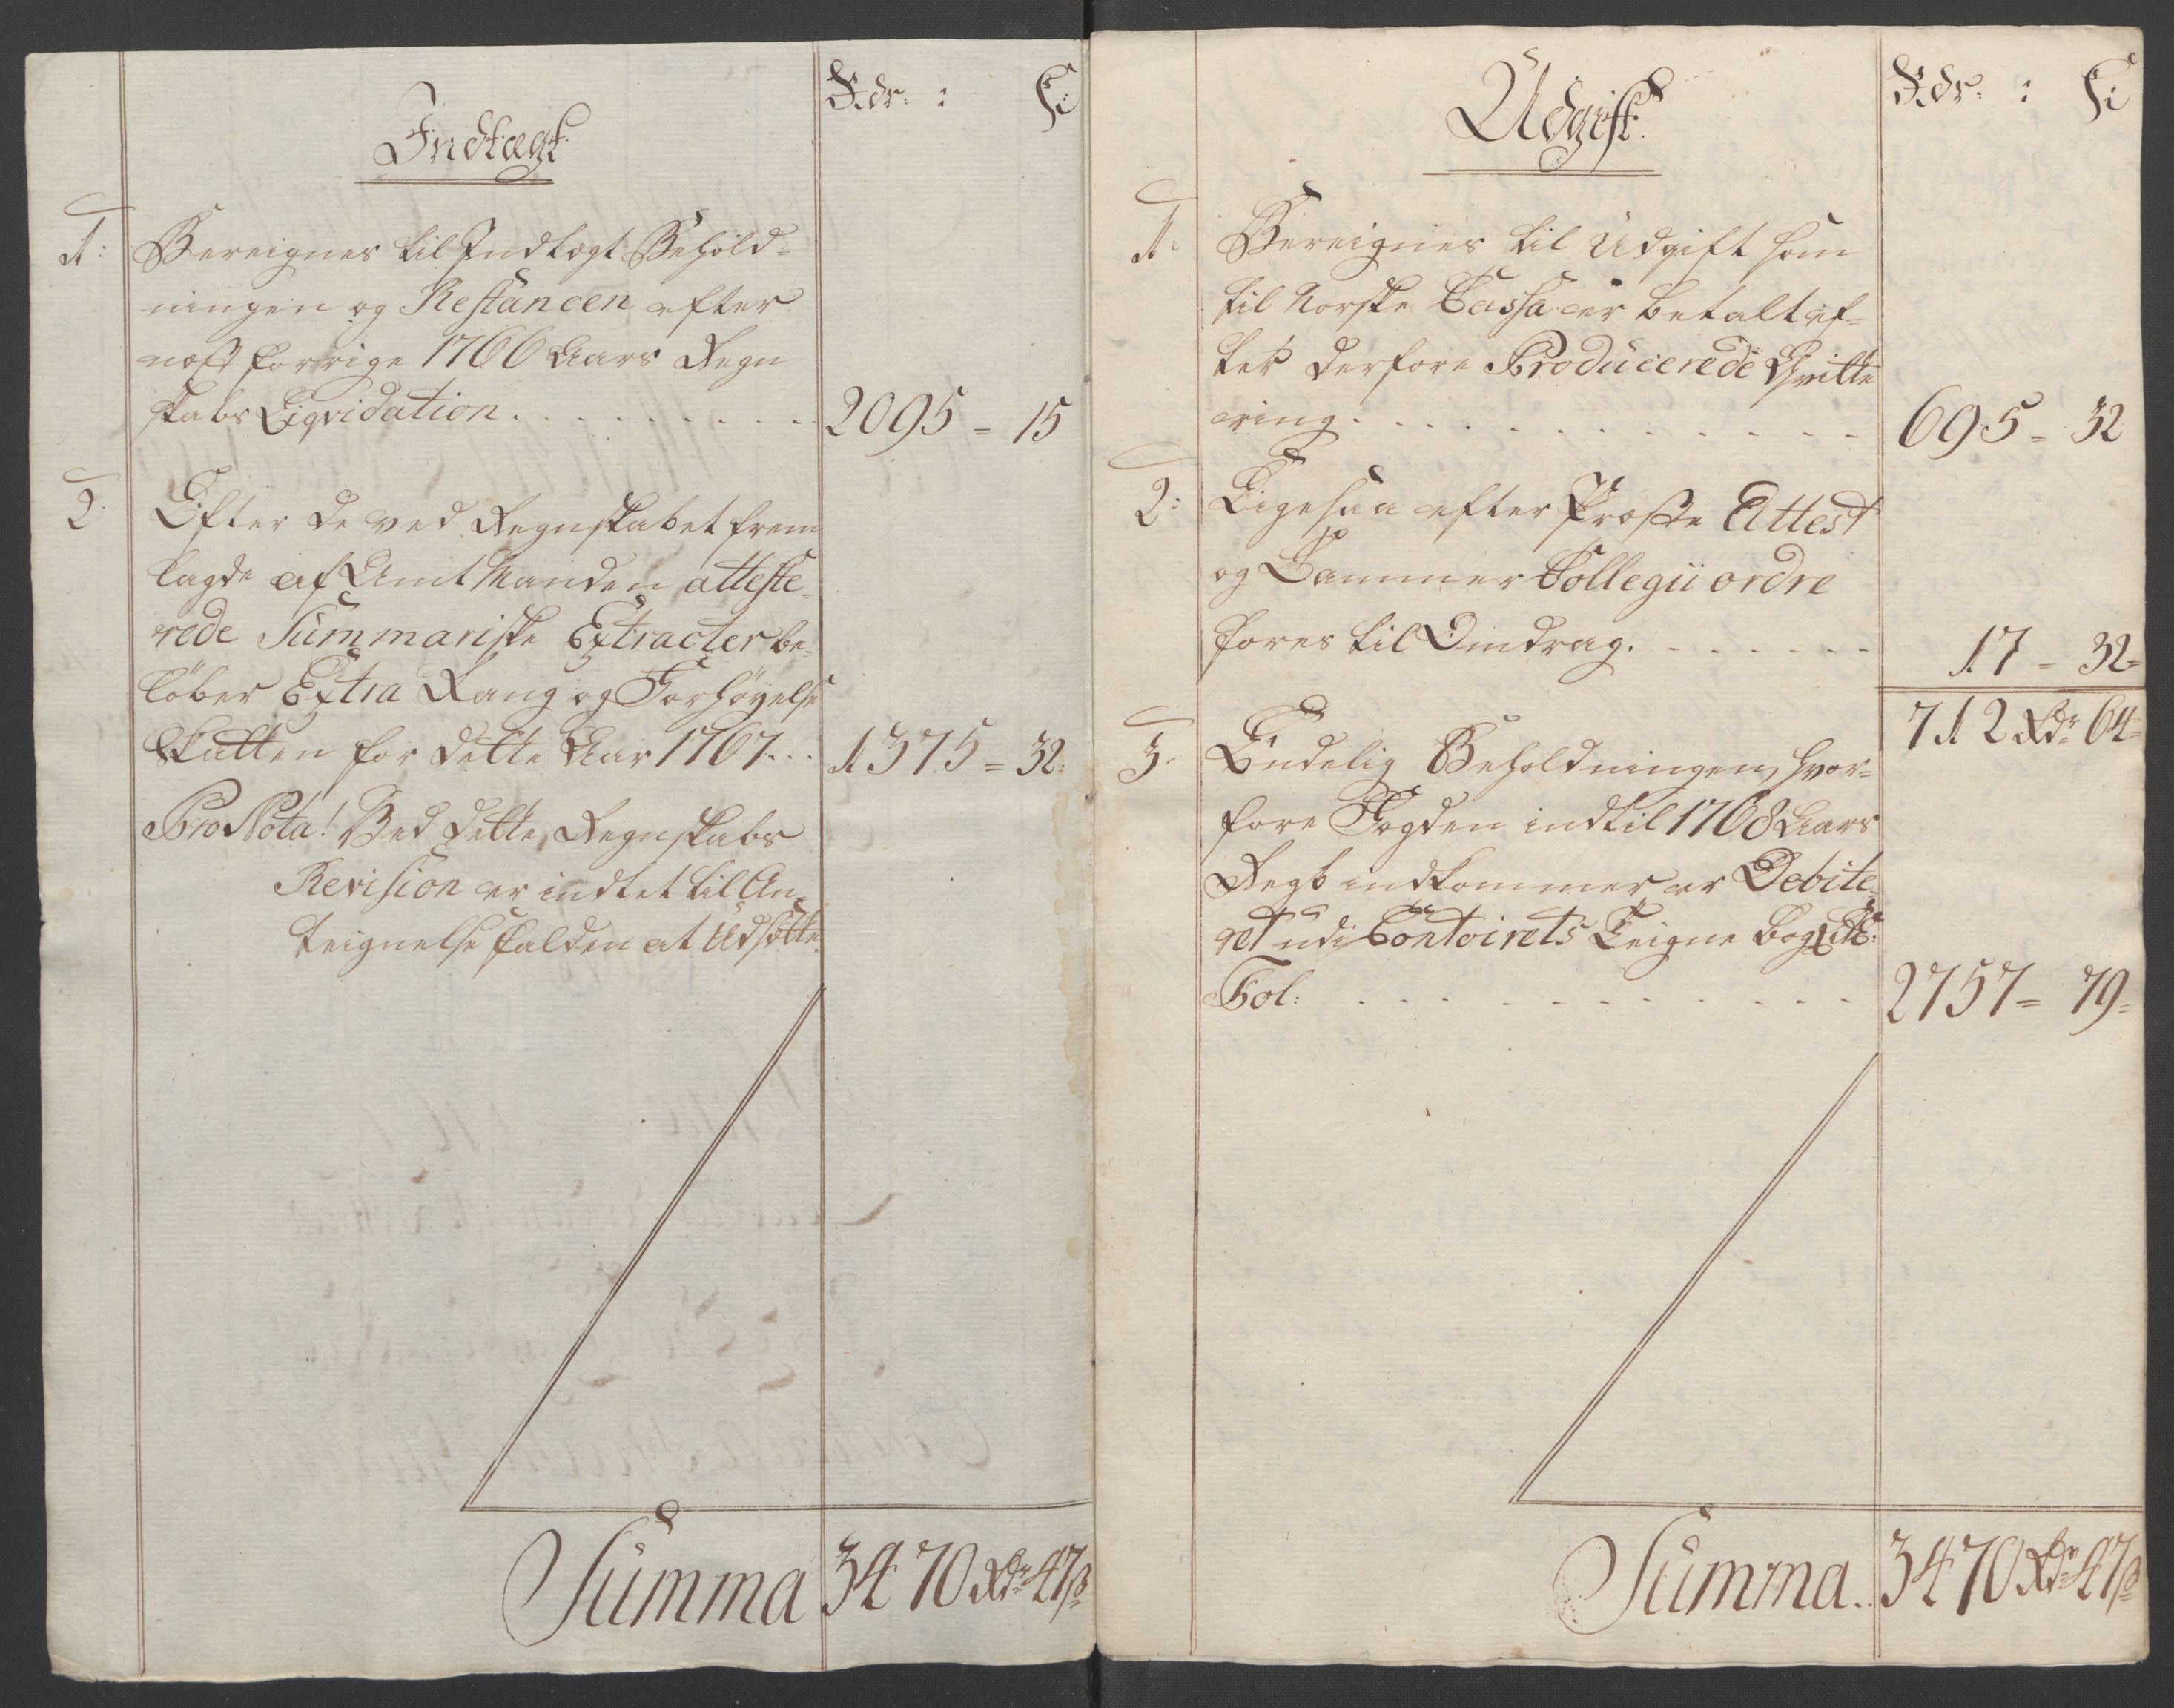 Rdr: : ß:
Indtægt
1: Bereignes til Indtægt Behold-
ningen og Restancen efter
næst forrige 1766 Aars Regn
skabs Liqvidation. . . . . . . . . 2095 = 15
2: Efter de ved Regnskabet frem
lagde af Amtmanden atteste-
rede Summariske Extracter be-
løber Extra Rang og Forhøyelse
Skatten for dette Aar 1767. . . 1375 = 32:
Pro Nota! Ved dette Regnskabs
Revision er indtet til An-
teignelse falden at Udsætte.
Summa 3470 Rdr 47 ß
Rdr: : ß:
Udgift.
1. Bereignes til Udgift som
til Norske Cassa er betalt ef-
ter derfore Producerede Qvitte
ring. . . . . . . . . . . . . 695 = 32
2: Ligesaa efter Attest
og Cammer Collegii ordre
føres til Omdrag. . . . . . . 17 = 32=
712 Rdr 64=
3. Endelig Beholdningen, hvor-
fore Fogden indtil 1768 Aars
Regb indkommer er Debite-
ret udi Contoirets Teigne bog Litr:
Fol: . . . . . . . . . . . 2757 = 79=
Summa. 3470 Rdr 47 ß